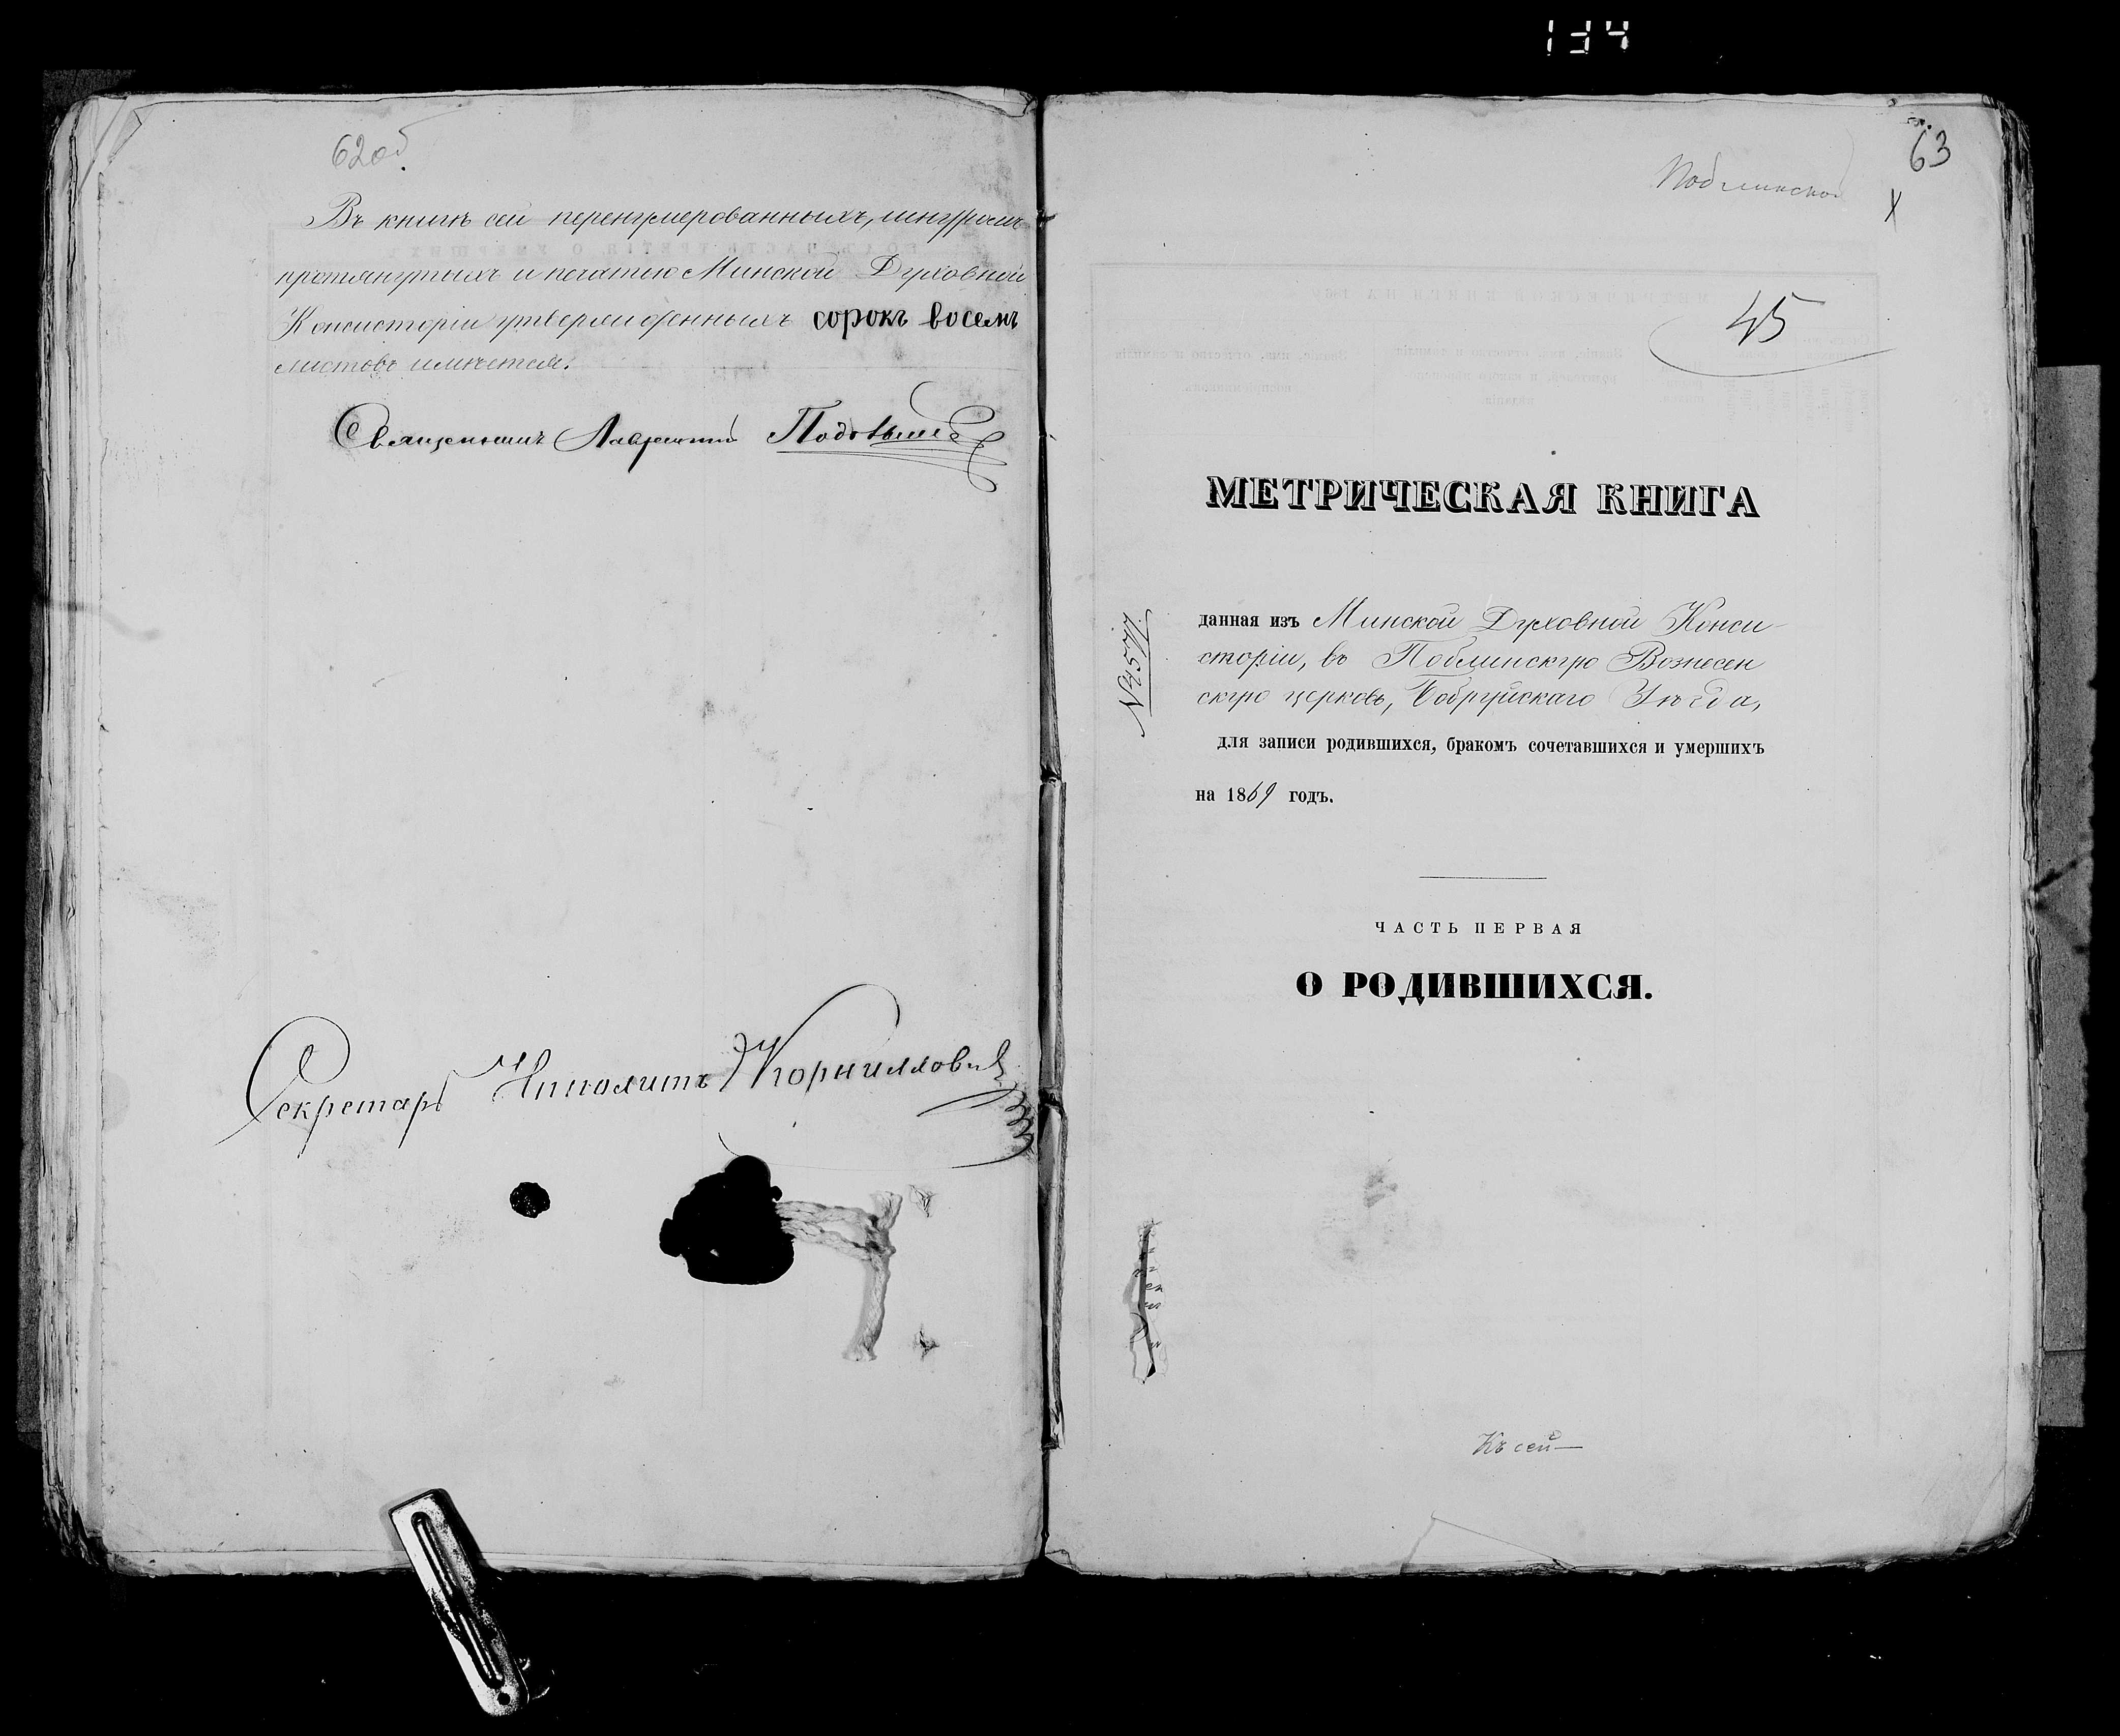 134
62об.
Въ книгѣ сей перенумерованныхъ, шнуромъ
протянутыхъ и печатью Минской Духовной
Консисторіи утвержденныхъ сорокъ восемъ
листовъ имѣется.
Священникъ Лаврентій
Секретарь Ипполитъ Корниллович
63
X
45
МЕТРИЧЕСКАЯ КНИГА
данная изъ Минской Духовной Конси-
сторіи, въ Поблинскую Вознесен
скую церковь, Бобруйскаго Уѣзда,
№4577.
для записи родившихся, бракомъ сочетавшихся и умершихъ
на 1869 годъ.
ЧАСТЬ ПЕРВАЯ
О РОДИВШИХСЯ.
Къ сей